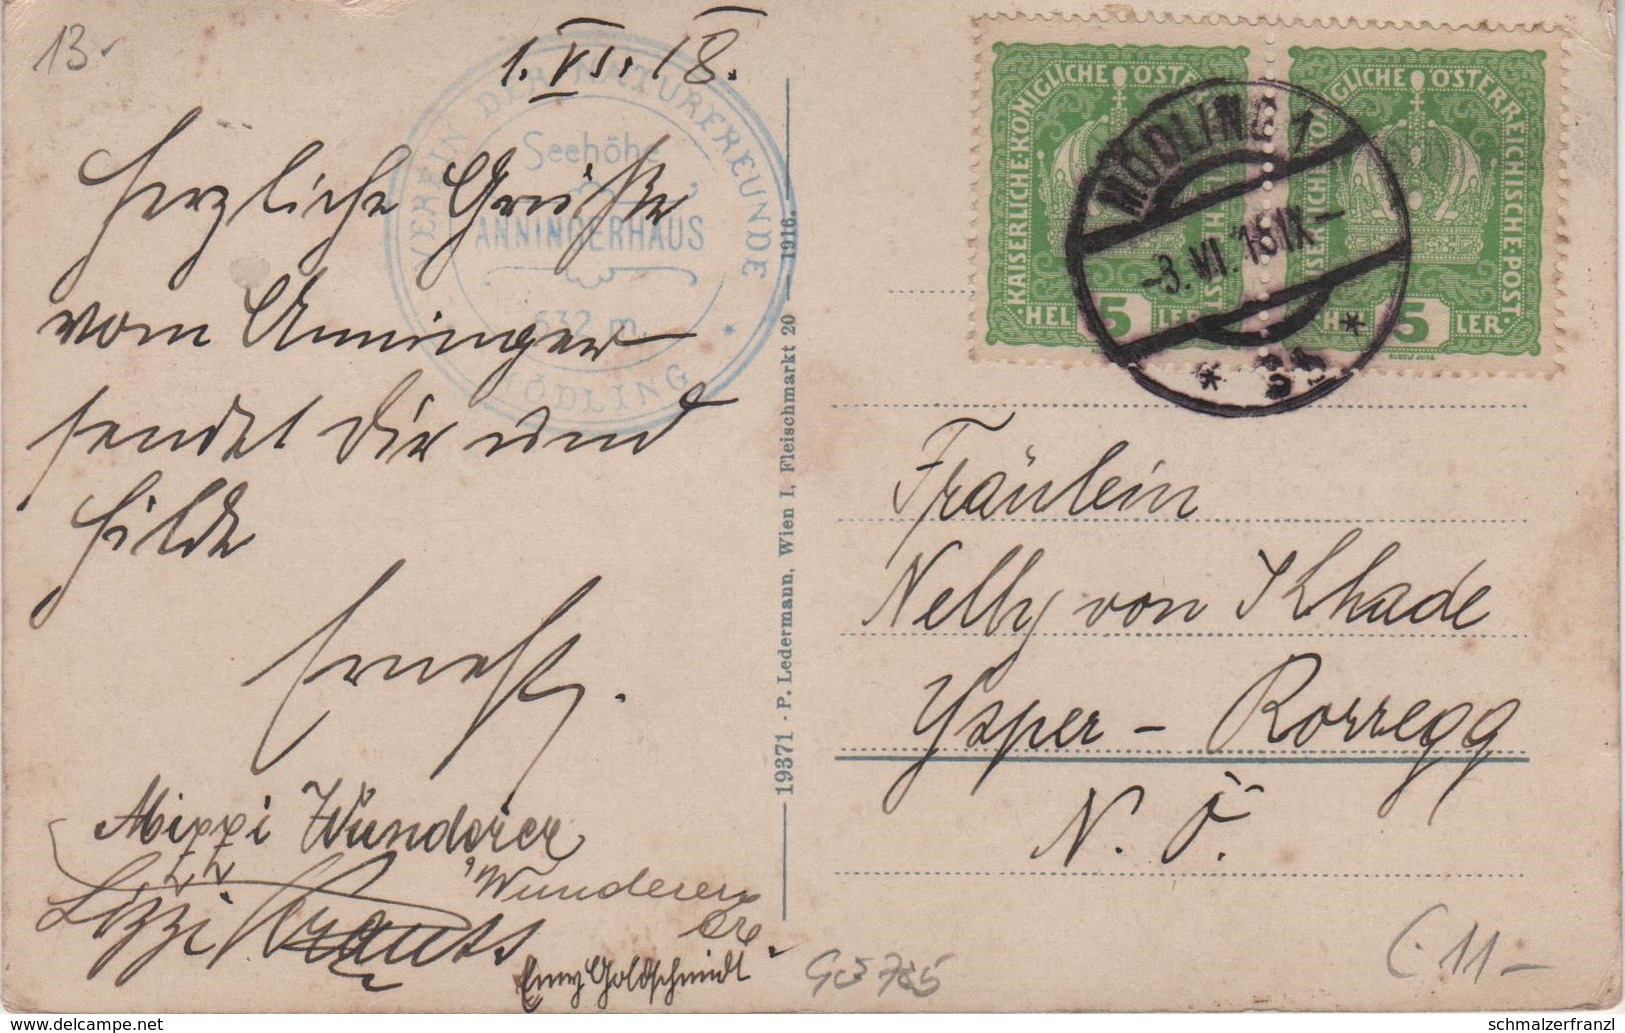 13
1. VI. 18.
VEREIN DER NATURFREUNDE
Seehöhe
ANNINGERHAUS
632 m.
MÖDLING
Herzliche Grüße
vom Anninger
sendet Dir und
Hilde
Ernst.
Mizzi Wunderer
Lizzi Krauss
Wunderer
Emy Goldschmidt
19371 - P. Ledermann, Wien I, Fleischmarkt 20 — 1916.
KAISERLICHE KÖNIGLICHE ÖSTERREICHISCHE POST
5 HELLER
KAISERLICHE KÖNIGLICHE ÖSTERREICHISCHE POST
5 HELLER
RUDOLF JUNK
MÖDLING 1
-3. VI. 18 IX-
* *
Fräulein
Nelly von
Ysper - Rorregg
N. Ö.
11-
delcampe.net
schmalzerfranzl